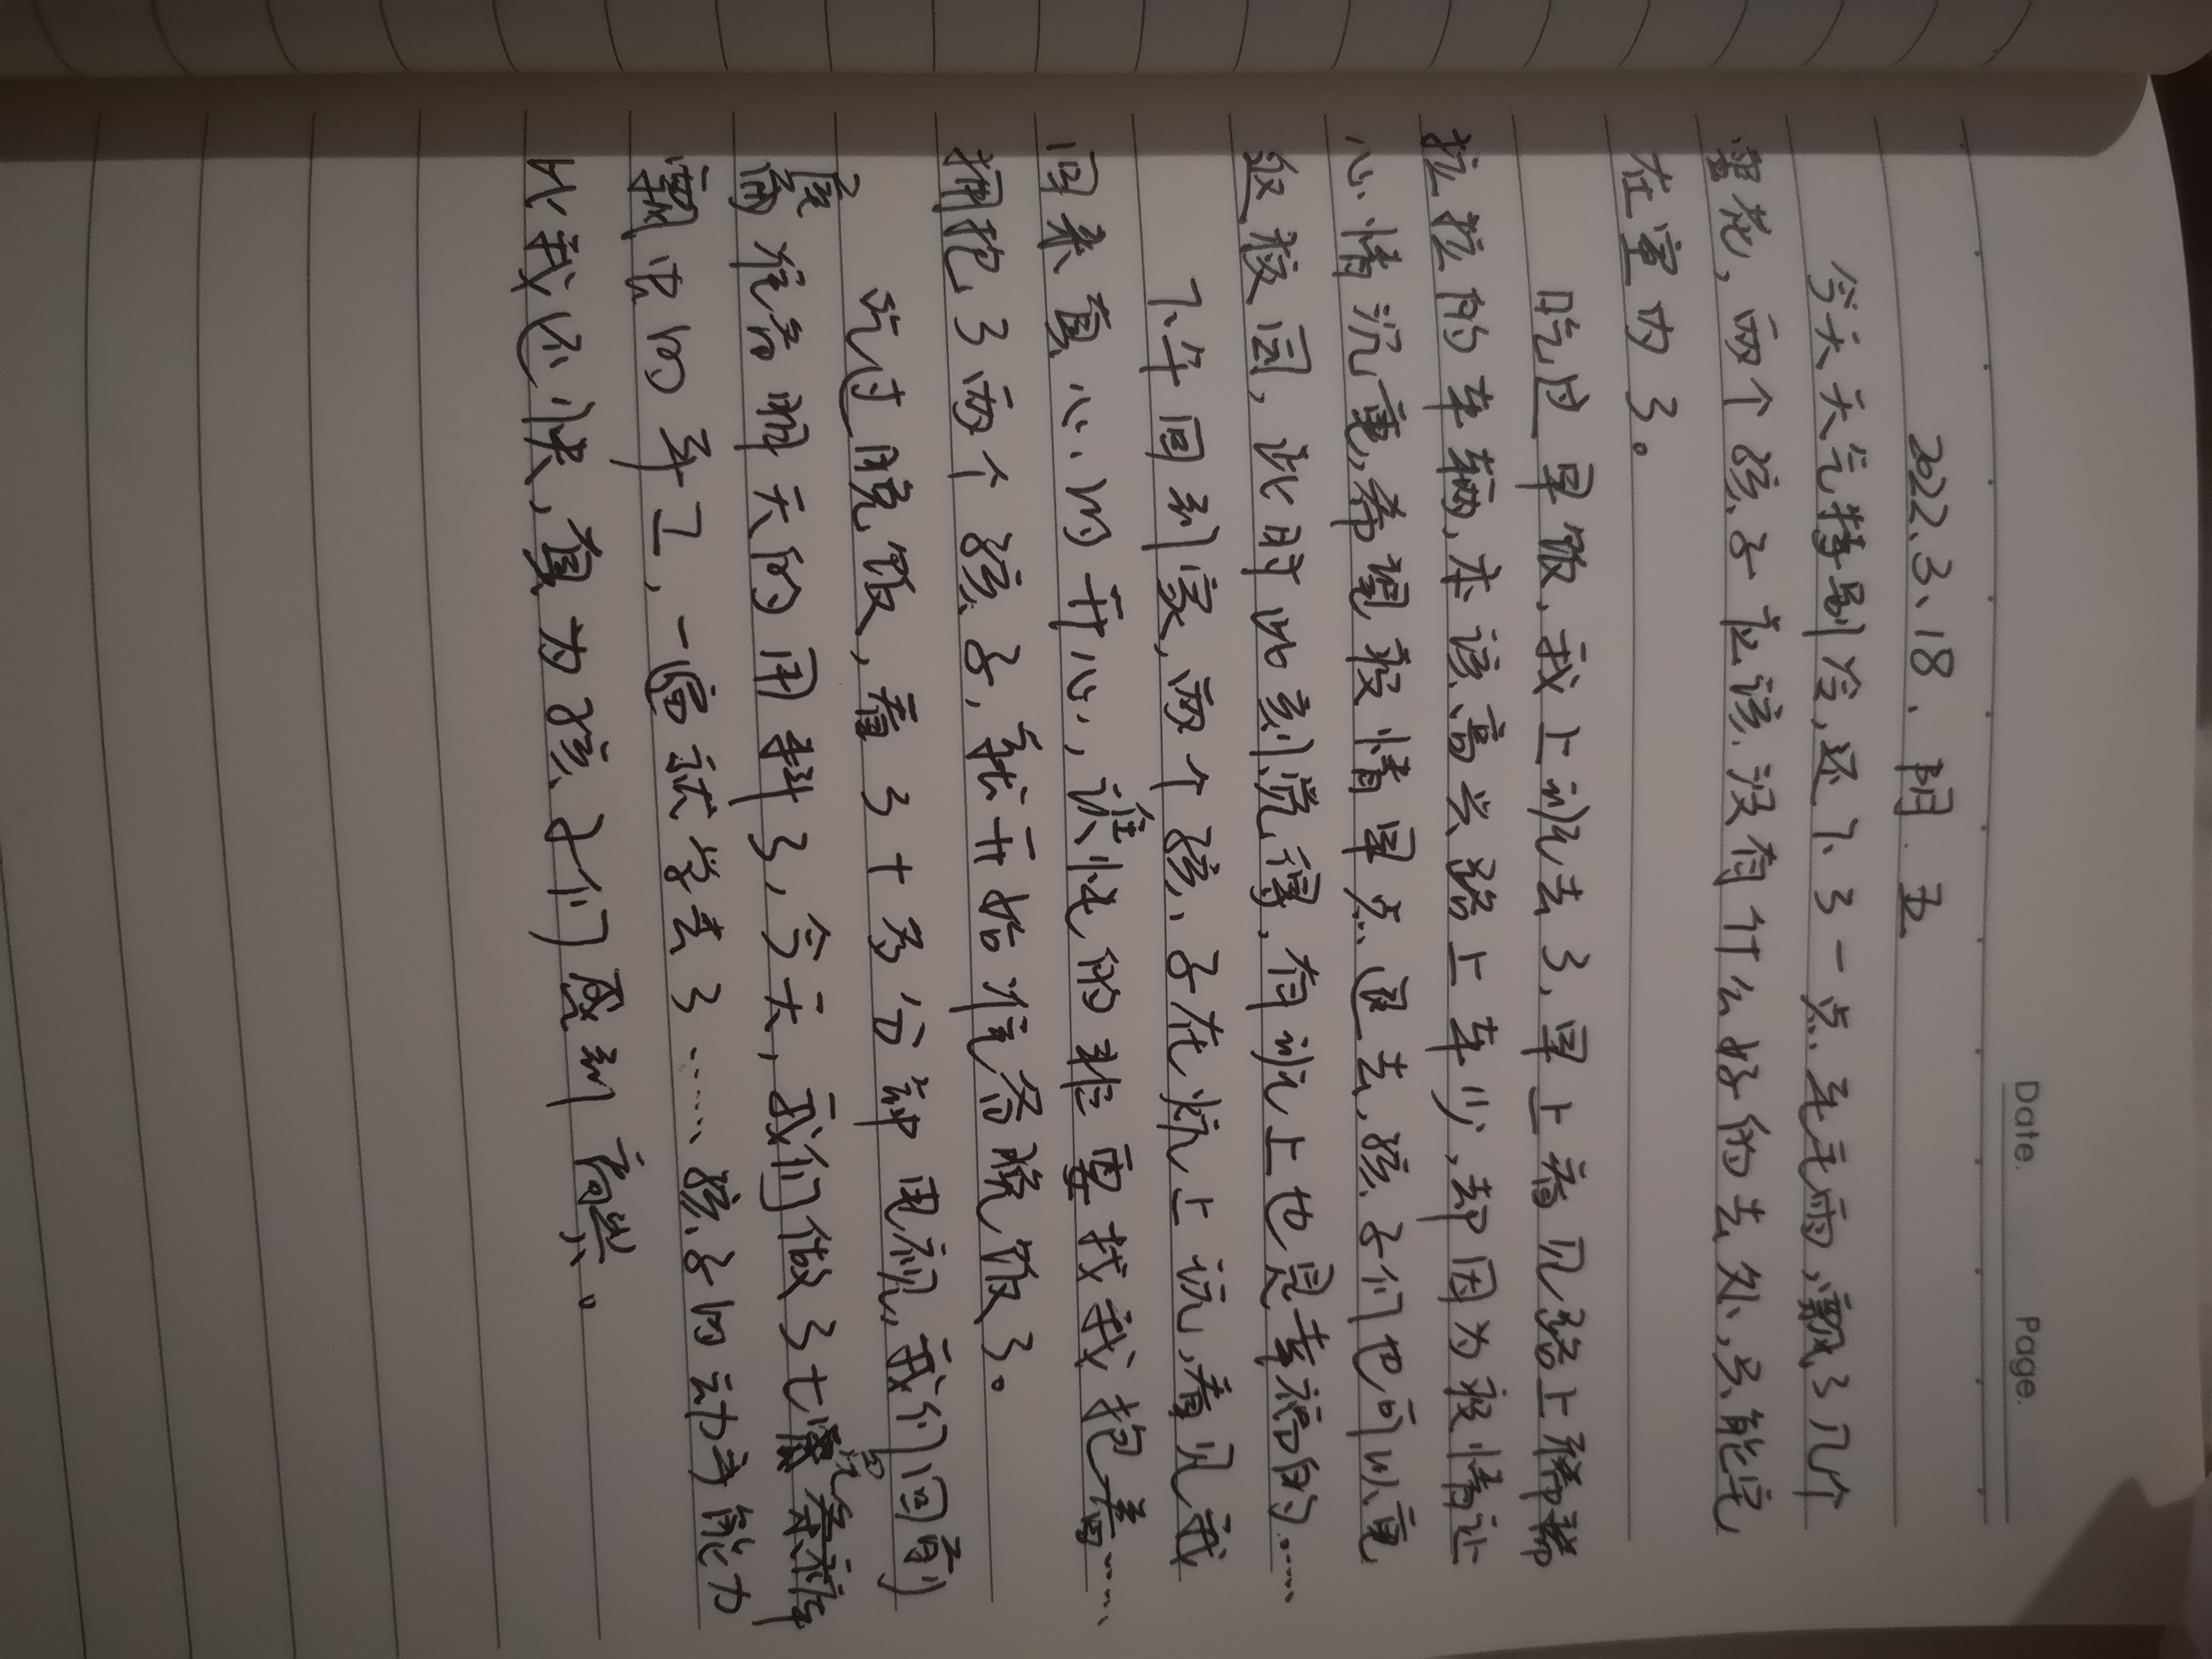 Date. Page.
2022.3.18. 阴. 五
今天天气特别冷,还下了一点毛毛雨,飘了几个
雪花,两个孩子应该没有什么好的去处,只能宅
在室内了。
吃过早饭,我上班去了,早上看见路上稀稀
拉拉的车辆,本该高兴路上车少,却因为疫情让
心情沉重,希望疫情早点退去,孩子们也可以重
返校园,此时此刻觉得,有班上也是幸福的……
下午回到家,两个孩子在炕上玩,看见我
回来真心的开心,谁谁的非要找我抱着……
拥抱了两个孩子,我开始准备晚饭了。
吃过晚饭,看了十多分钟电视,我们回到
房间准备明天的用料了,今天,我们做了七
飘虫的手工,一遍就学去了……孩子的动手能力
比我还快,真为孩子们感到高兴。